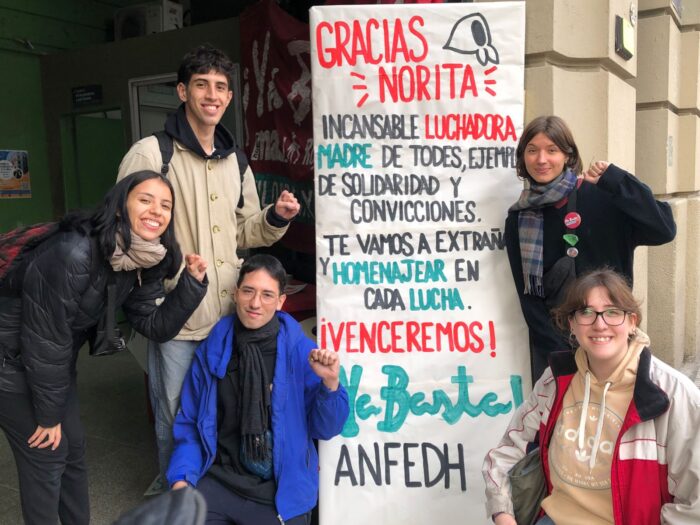 GRACIAS
NORITA
INCANSABLE LUCHADORA,
MADRE DE TODES, EJEMPLO
DE SOLIDARIDAD Y
CONVICCIONES.
TE VAMOS A EXTRAÑAR
Y HOMENAJEAR EN
CADA LUCHA.
¡VENCEREMOS!
Ya Basta!
ANFEDH
adidas